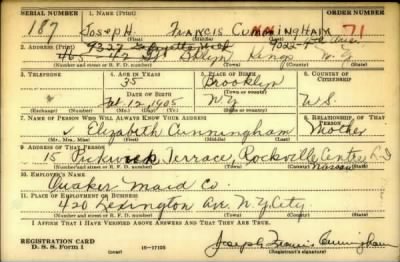 SERIAL NUMBER 1. NAME (Print) ORDER NUMBER
187 JOSEPH FRANCIS CUNNINGHAM 71
(First) (Middle) (Last)
2. ADDRESS (Print)
465 42 St Bklyn Kings N.Y.
(Number and street or R. F. D. number) (Town) (County) (State)
3. TELEPHONE 4. AGE IN YEARS 5. PLACE OF BIRTH 6. COUNTRY OF CITIZENSHIP
35 Brooklyn
DATE OF BIRTH
12 1905 N.Y. U.S.
(Exchange) (Number) (Mo.) (Day) (Yr.) (State or country)
7. NAME OF PERSON WHO WILL ALWAYS KNOW YOUR ADDRESS 8. RELATIONSHIP OF THAT PERSON
Elizabeth Cunningham Mother
(Mr., Mrs., Miss) (First) (Middle) (Last)
9. ADDRESS OF THAT PERSON
15 Pickwick Terrace, Rockville Centre L I
Nassau
(Number and street or R. F. D. number) (Town) (County) (State)
10. EMPLOYER'S NAME
Quaker Maid Co.
11. PLACE OF EMPLOYMENT OR BUSINESS
420 Lexington Ave. N.Y. City
(Number and street or R. F. D. number) (Town) (County) (State)
I AFFIRM THAT I HAVE VERIFIED ABOVE ANSWERS AND THAT THEY ARE TRUE.
REGISTRATION CARD
D. S. S. Form 1 16-17105 Joseph Francis Cunningham
(Registrant's signature)